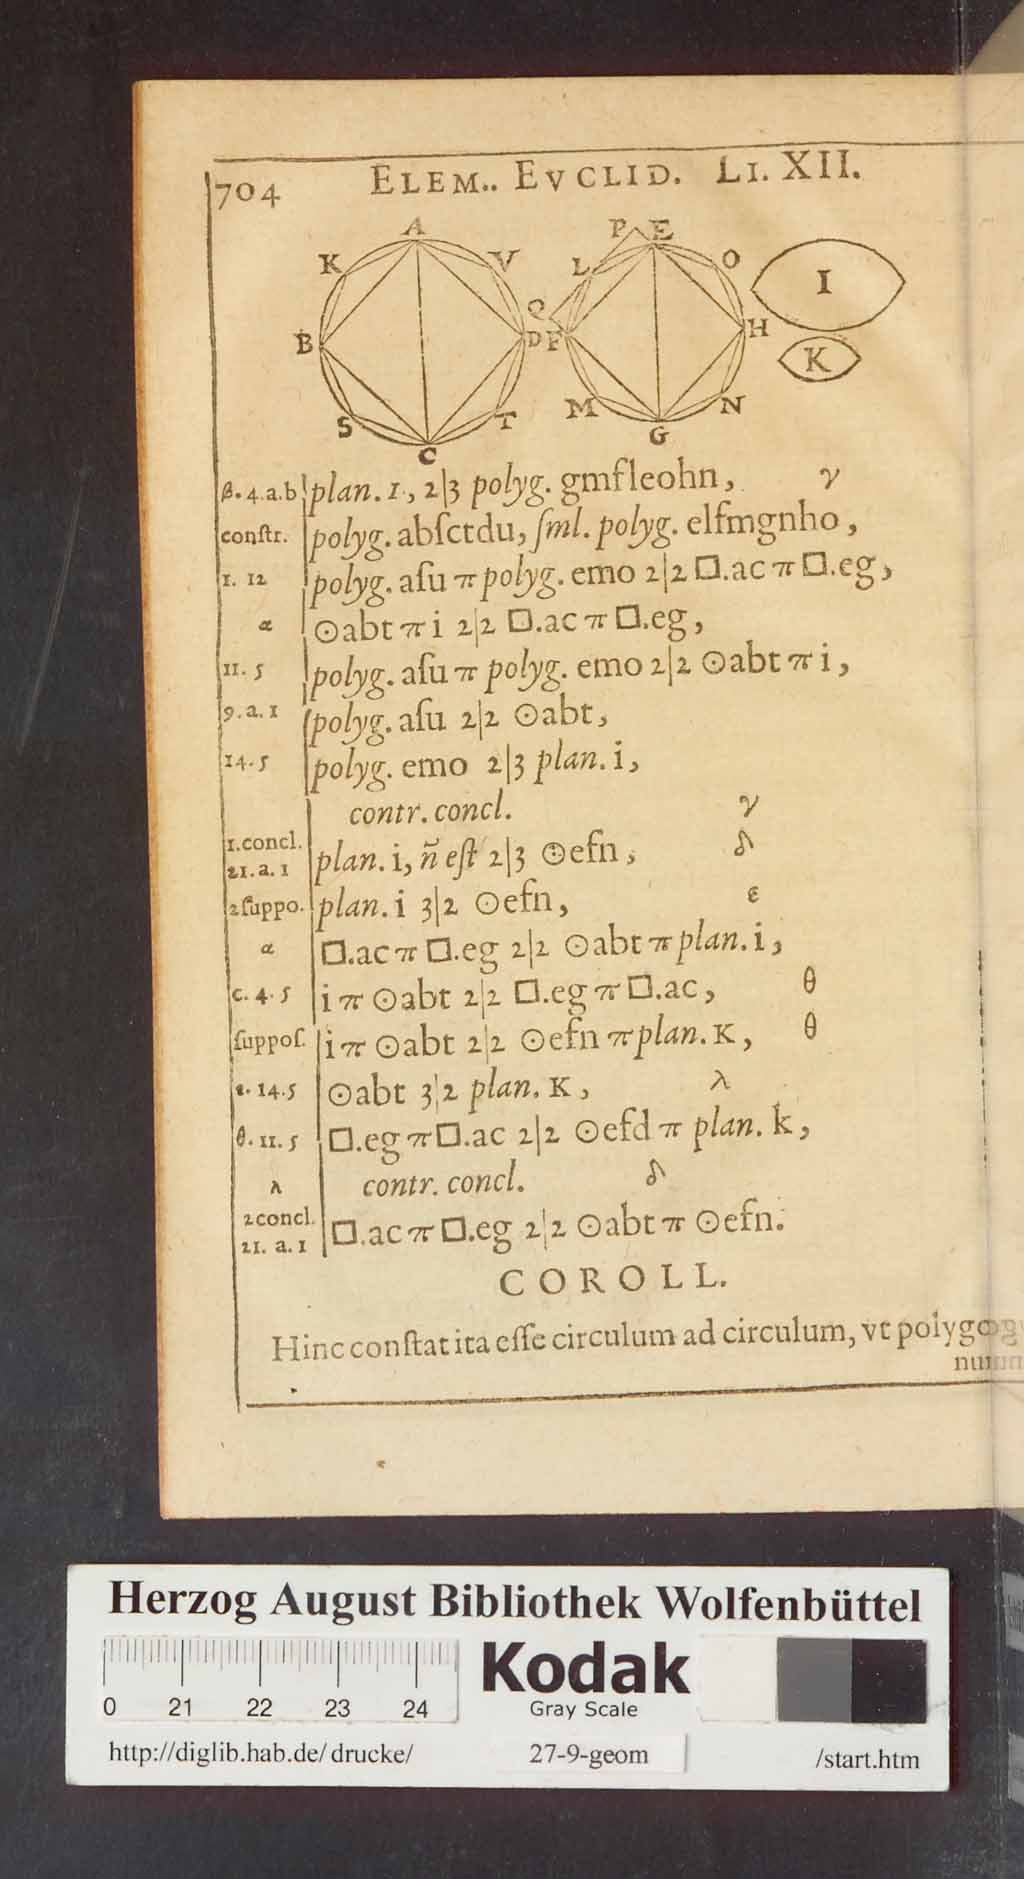 704 ELEM.. EVCLID. LI. XII.
A
K V
B D
S T
C
P E
L O
Q
F H
M N
G
I
K
β. 4. a. b plan. I, 2|3 polyg. gmfleohn, γ
conſtr. polyg. abſctdu, ſml. polyg. elfmgnho,
1. 12 polyg. aſu π polyg. emo 2|2 □.ac π □.eg,
α ⊙abt π i 2|2 □.ac π □.eg,
11. 5 polyg. aſu π polyg. emo 2|2 ⊙abt π i,
9. a. 1 polyg. aſu 2|2 ⊙abt,
14. 5 polyg. emo 2|3 plan. i,
contr. concl. γ
1.concl.
21. a. 1 plan. i, n̄ eſt 2|3 ⊙efn, δ
2ſuppo. plan. i 3|2 ⊙efn, ε
α □.ac π □.eg 2|2 ⊙abt π plan. i,
c. 4. 5 i π ⊙abt 2|2 □.eg π □.ac, θ
ſuppoſ. i π ⊙abt 2|2 ⊙efn π plan. K, θ
ε. 14.5 ⊙abt 3|2 plan. K, λ
θ. 11. 5 □.eg π □.ac 2|2 ⊙efd π plan. k,
λ contr. concl. δ
2concl.
21. a. 1 □.ac π □.eg 2|2 ⊙abt π ⊙efn.
COROLL.
Hinc conſtat ita eſſe circulum ad circulum, vt polygo
num
Herzog August Bibliothek Wolfenbüttel
0 21 22 23 24
Kodak
Gray Scale
http://diglib.hab.de/drucke/ 27-9-geom /start.htm